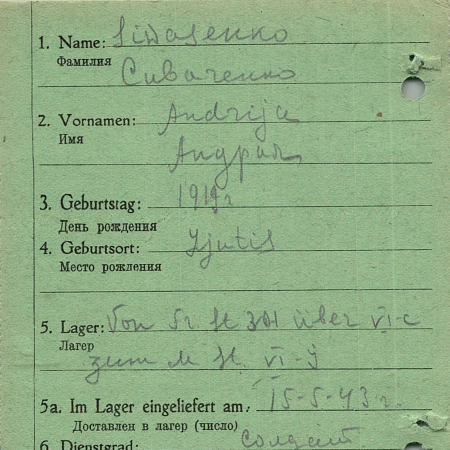 1. Name: Siwasenko
Фамилия Сиваченко
2. Vornamen: Andrija
Имя
Андрия
3. Geburtstag: 1919 г
День рождения
4. Geburtsort: Ljutis
Место рождения
5. Lager: Von Fr St über VI-C
Лагер
zum M St. VI-J
5a. Im Lager eingeliefert am: 15-5-43 г.
Доставлен в лагер (число)
6. Dienstgrad: солдат